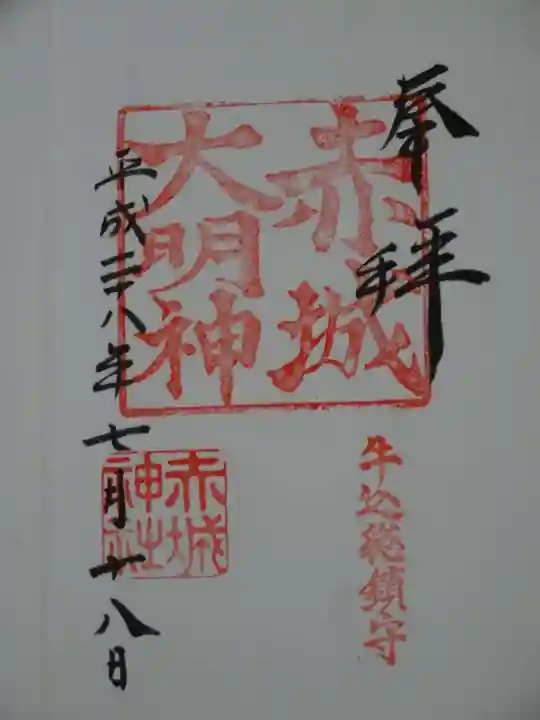 奉拝
赤城
大明神
牛込総鎮守
平成二十八年七月十八日
赤城
神社